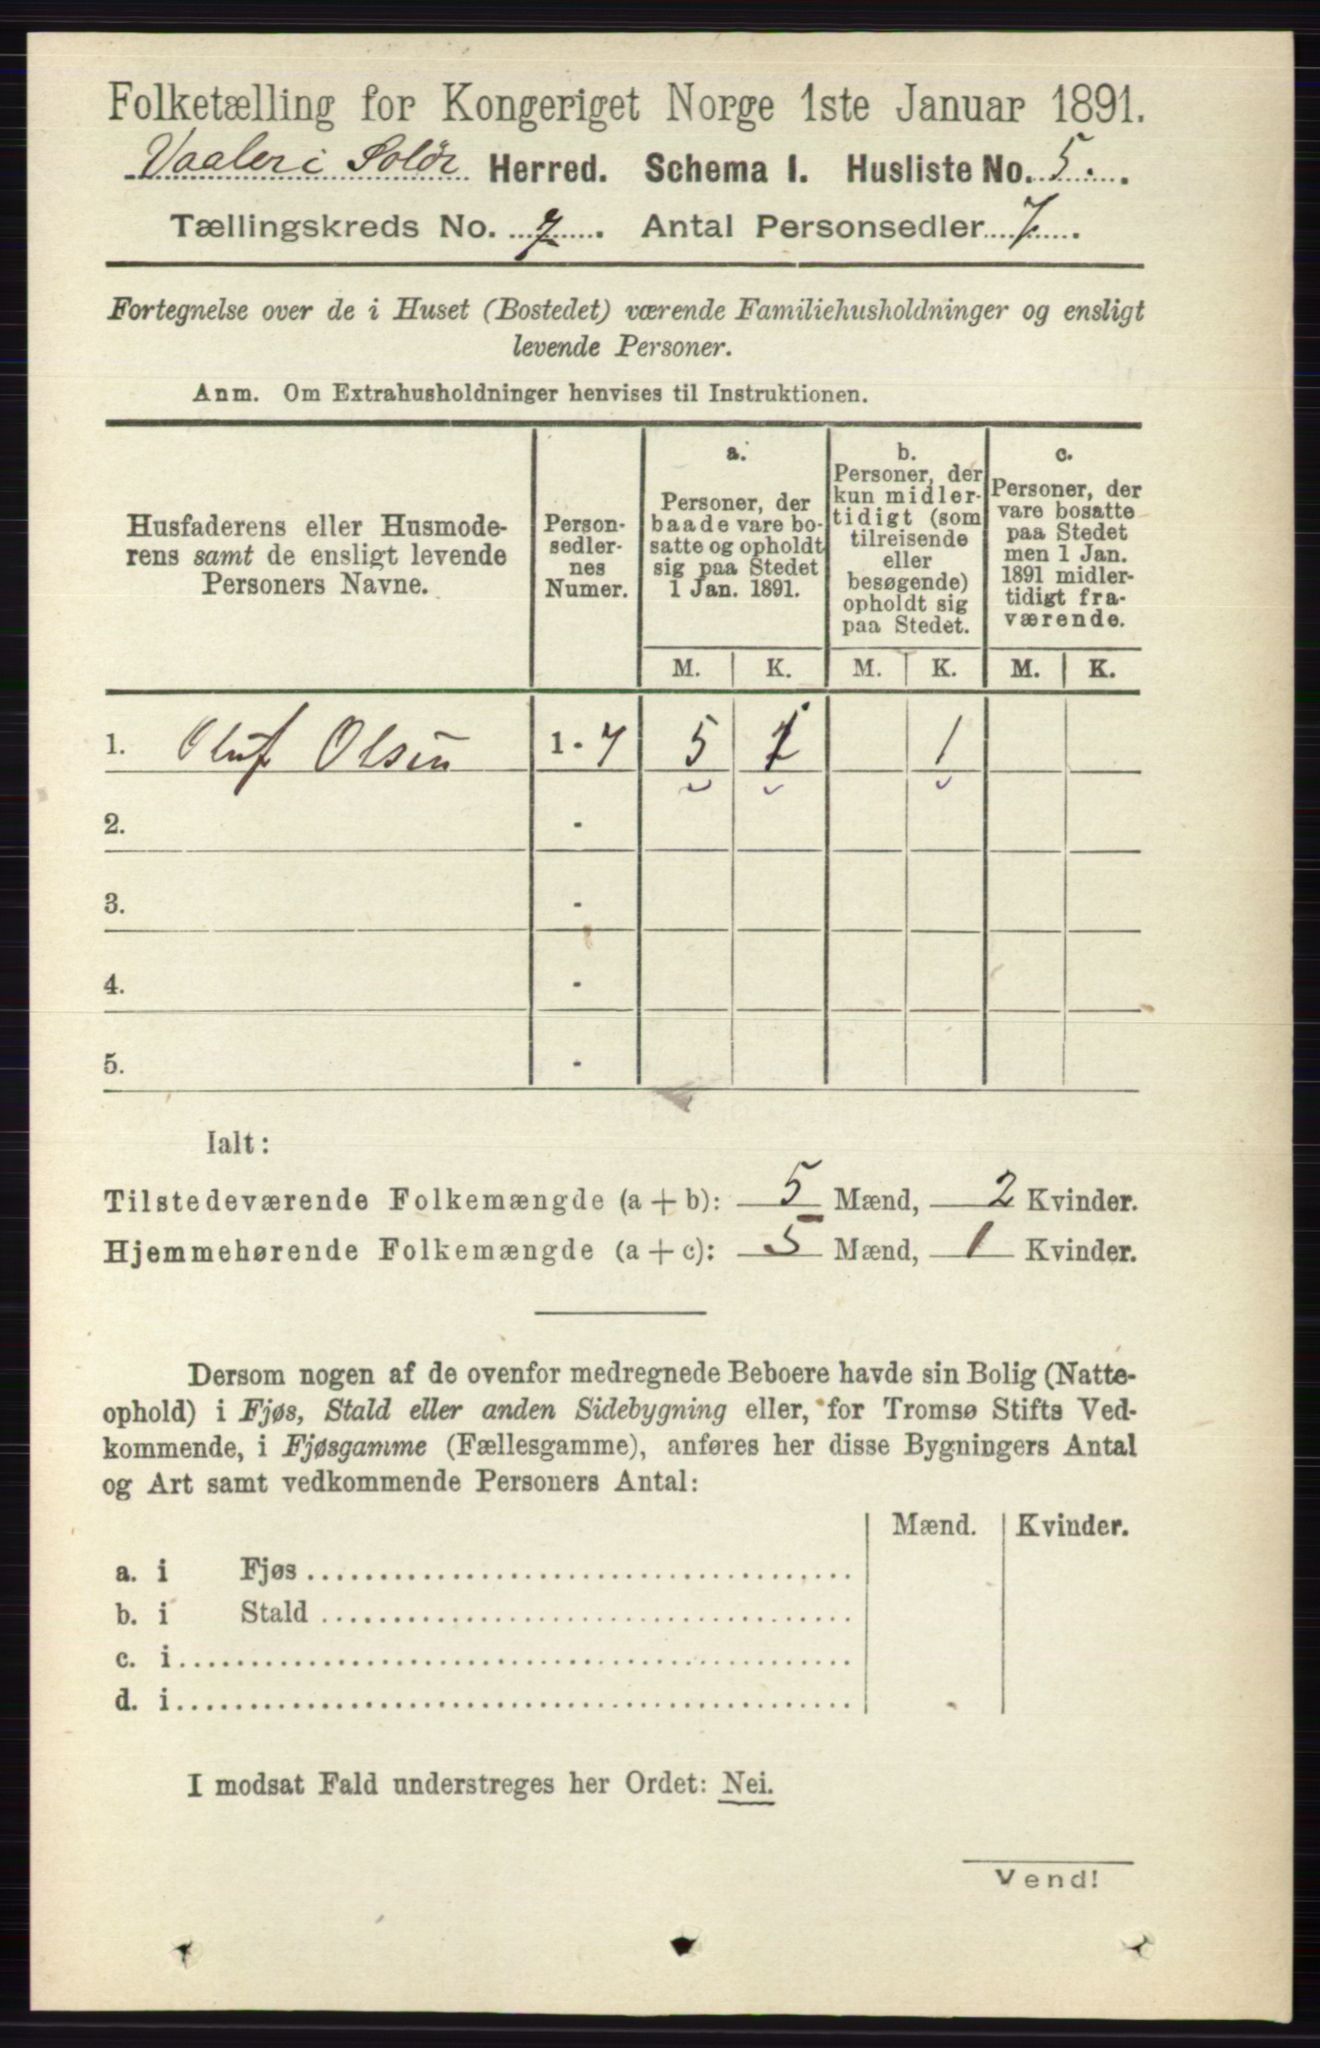 Folketælling for Kongeriget Norge 1ste Januar 1891.
Vaaler i Solør Herred. Schema 1. Husliste No. 5.
Tællingskreds No. 7. Antal Personsedler 7.
Fortegnelse over de i Huset (Bostedet) værende Familiehusholdninger og ensligt
levende Personer.
Anm. Om Extrahusholdninger henvises til Instruktionen.
Husfaderens eller Husmode-
rens samt de ensligt levende
Personers Navne.
Person-
sedler-
nes
Numer.
a.
Personer, der
baade vare bo-
satte og opholdt
sig paa Stedet
1 Jan. 1891.
b.
Personer, der
kun midler-
tidigt (som
tilreisende
eller
besøgende)
opholdt sig
paa Stedet.
c.
Personer, der
vare bosatte
paa Stedet
men 1 Jan.
1891 midler-
tidigt fra-
værende.
M. K. M. K. M. K.
1. Oluf Olsen 1 - 7 5 1 1
2. -
3. -
4. -
5. -
Ialt:
Tilstedeværende Folkemængde (a + b): 5 Mænd, 2 Kvinder.
Hjemmehørende Folkemængde (a + c): 5 Mænd, 1 Kvinder.
Dersom nogen af de ovenfor medregnede Beboere havde sin Bolig (Natte-
ophold) i Fjøs, Stald eller anden Sidebygning eller, for Tromsø Stifts Ved-
kommende, i Fjøsgamme (Fællesgamme), anføres her disse Bygningers Antal
og Art samt vedkommende Personers Antal:
Mænd. Kvinder.
a. i Fjøs
b. i Stald
c. i
d. i
I modsat Fald understreges her Ordet: Nei.
Vend!